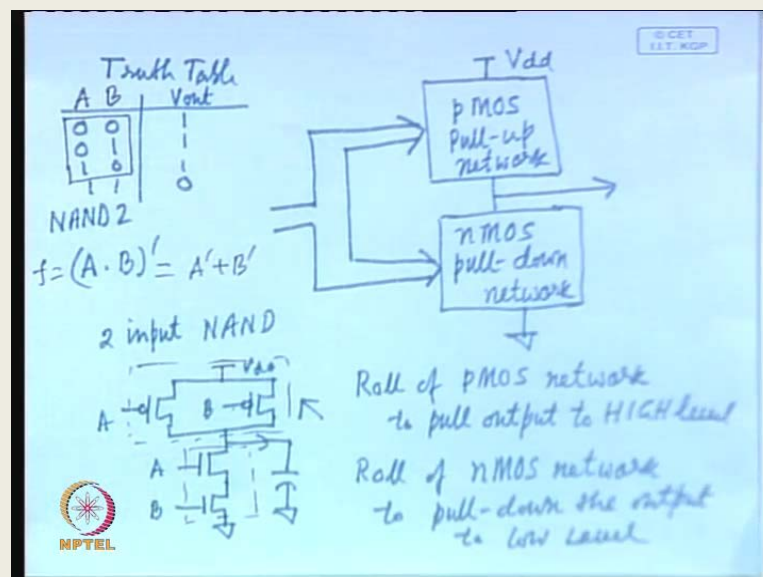 © CET
I.I.T. KGP
Truth Table
A B Vout
0 0 1
0 1 1
1 0 1
1 1 0
NAND2
f = (A · B)' = A' + B'
2 input NAND
Vdd
A
B
A
B
Vdd
pMOS
pull-up
network
nMOS
pull-down
network
Roll of pMOS network
to pull output to HIGH level
Roll of nMOS network
to pull-down the output
to low level
NPTEL